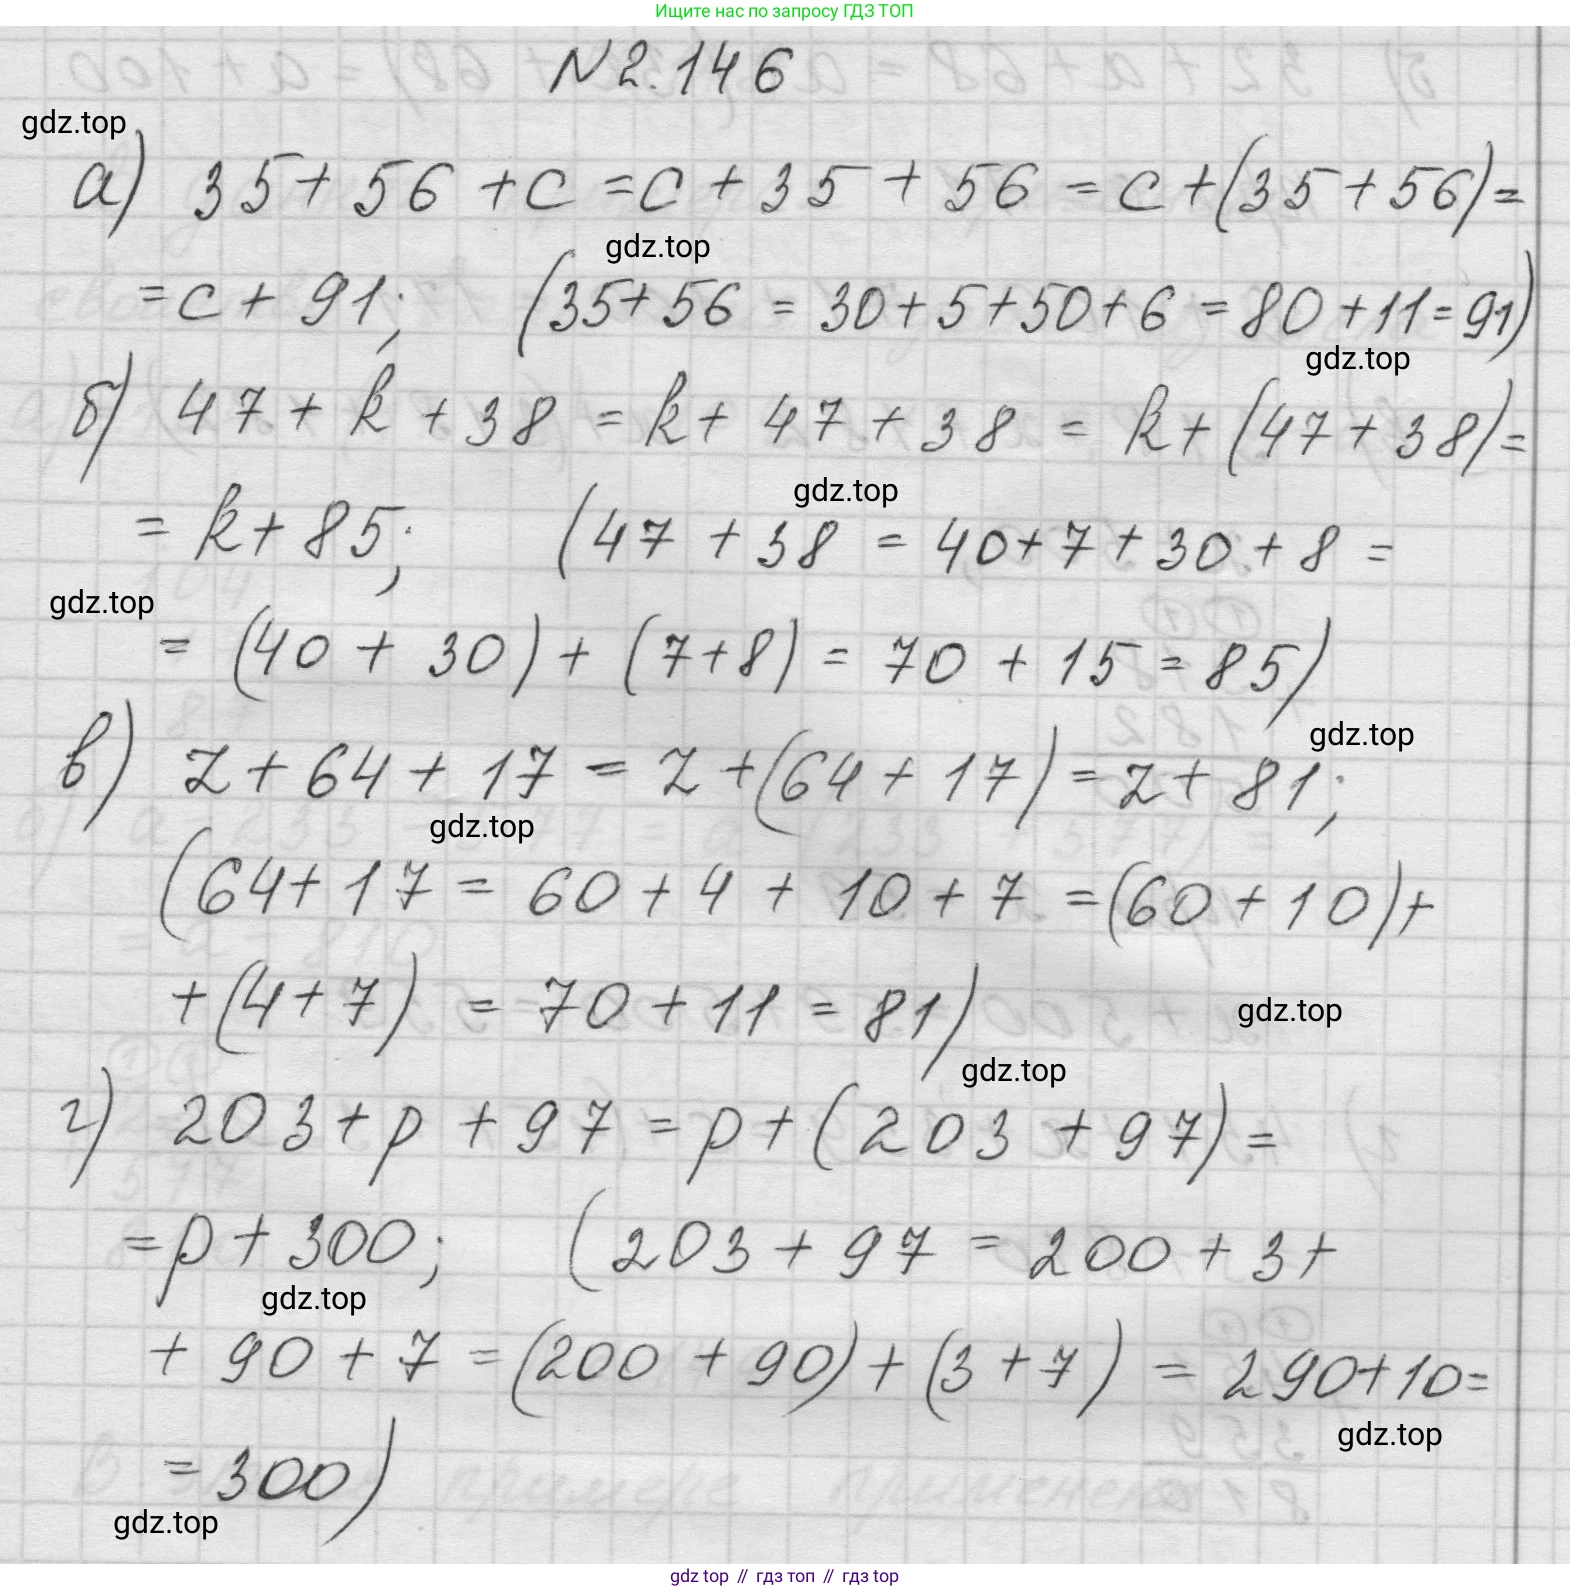 Ищите нас по запросу ГДЗ ТОП
N 2.146
gdz.top
а) 35 + 56 + c = c + 35 + 56 = c + (35 + 56) =
gdz.top
= c + 91; (35 + 56 = 30 + 5 + 50 + 6 = 80 + 11 = 91)
gdz.top
б) 47 + k + 38 = k + 47 + 38 = k + (47 + 38) =
gdz.top
= k + 85; (47 + 38 = 40 + 7 + 30 + 8 =
gdz.top
= (40 + 30) + (7 + 8) = 70 + 15 = 85)
gdz.top
в) z + 64 + 17 = z + (64 + 17) = z + 81;
gdz.top
(64 + 17 = 60 + 4 + 10 + 7 = (60 + 10) +
+ (4 + 7) = 70 + 11 = 81)
gdz.top
gdz.top
г) 203 + p + 97 = p + (203 + 97) =
= p + 300; (203 + 97 = 200 + 3 +
gdz.top
+ 90 + 7 = (200 + 90) + (3 + 7) = 290 + 10 =
gdz.top
= 300)
gdz.top
gdz top // гдз топ // гдз top